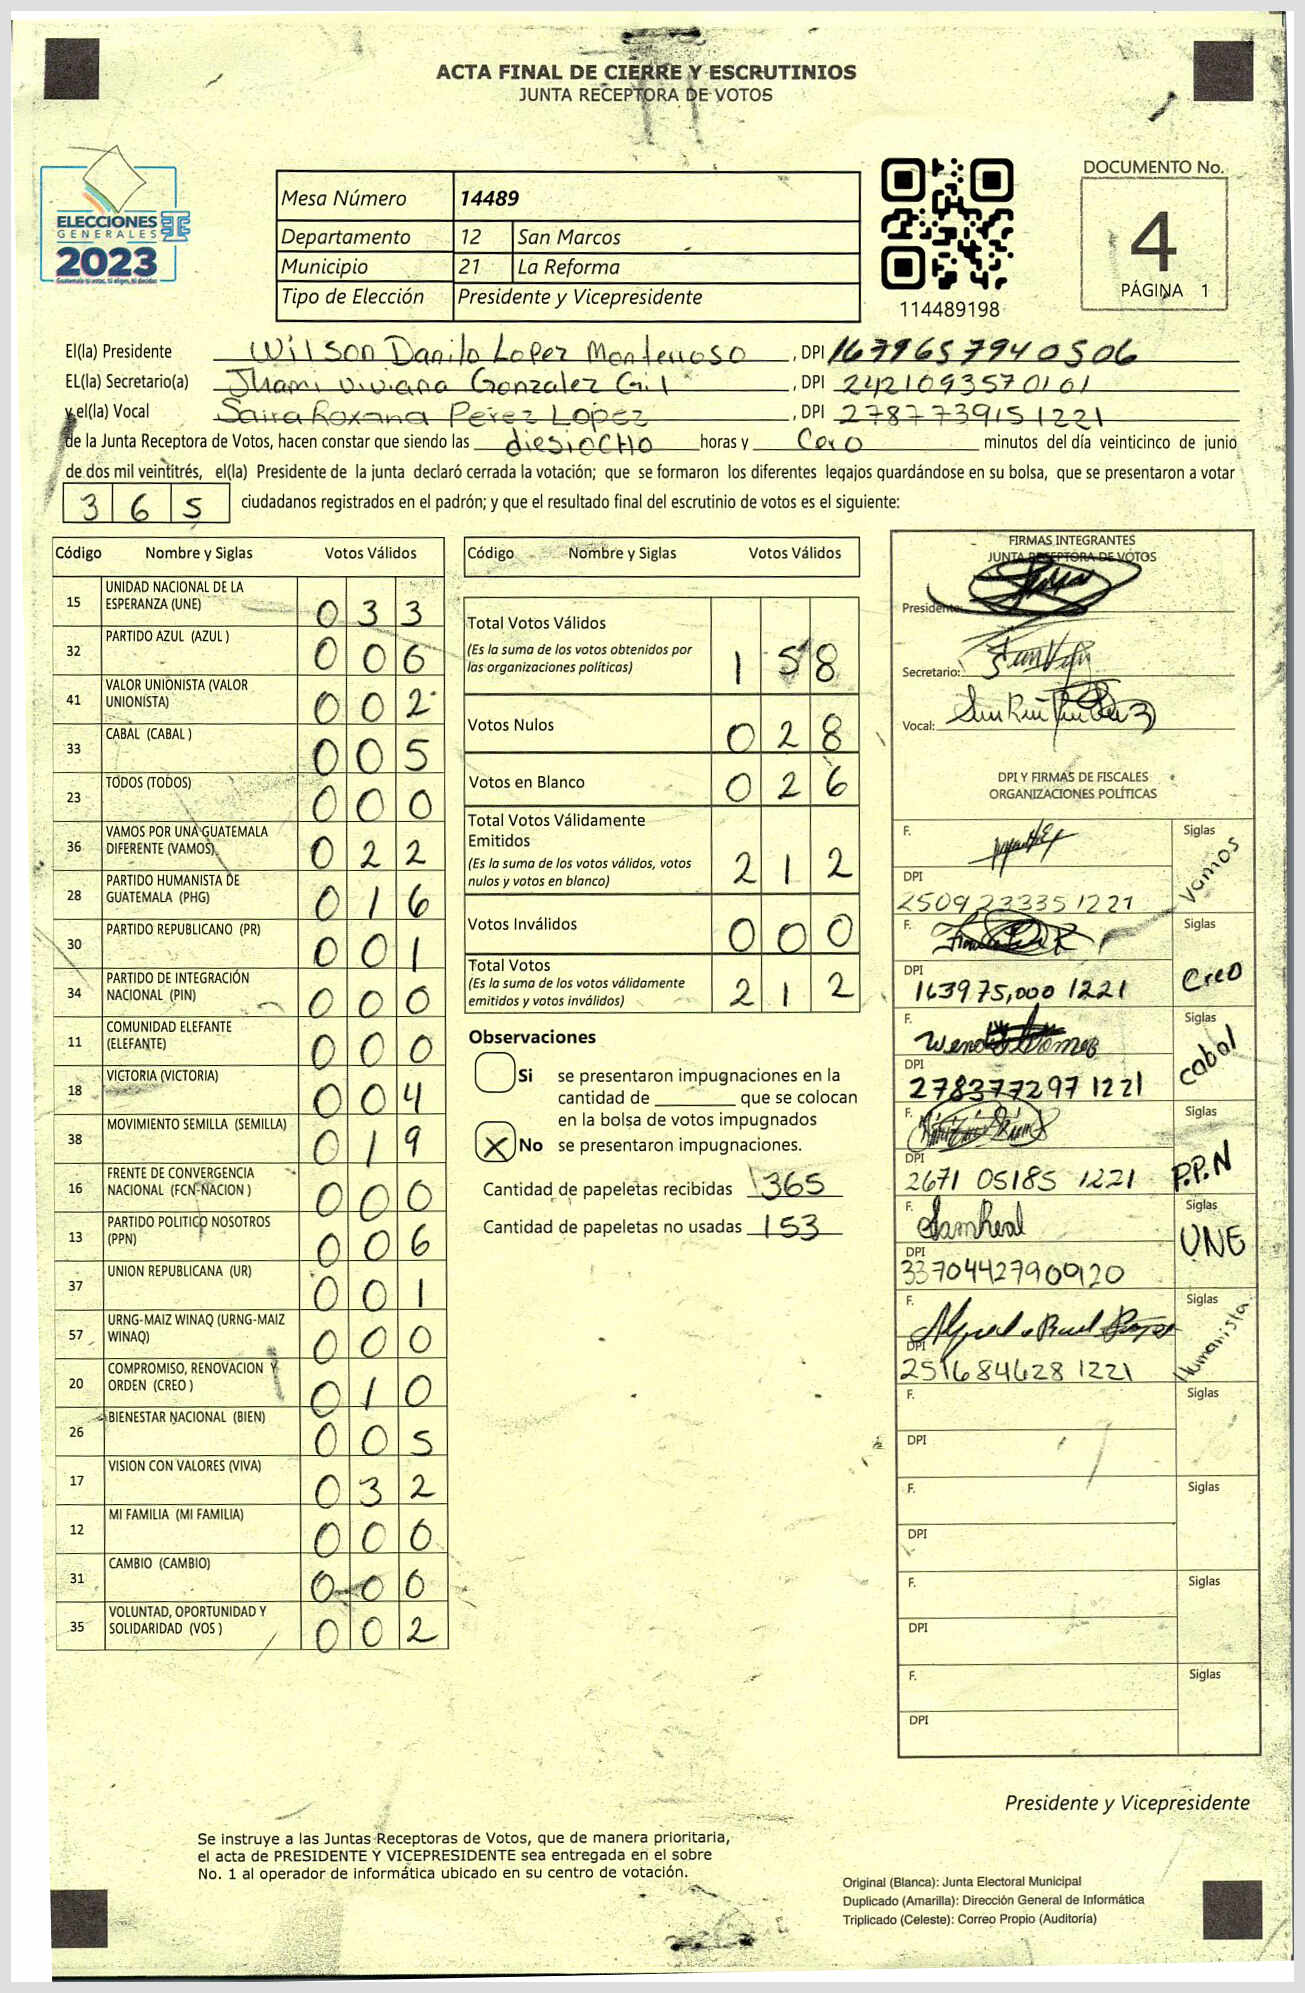 ACTA FINAL DE CIERRE Y ESCRUTINIOS
JUNTA RECEPTORA DE VOTOS
ELECCIONES
GENERALES
2023
Mesa Número 14489
Departamento 12 San Marcos
Municipio 21 La Reforma
Tipo de Elección Presidente y Vicepresidente
114489198
DOCUMENTO No.
4
PÁGINA 1
El(la) Presidente Wilson Danilo Lopez Monterroso, DPI 1679657940506
EL(la) Secretario(a) Jhami Viviana Gonzalez Gil, DPI 2421093570101
y el(la) Vocal Saira Roxana Perez Lopez, DPI 2787739151221
de la Junta Receptora de Votos, hacen constar que siendo las diesiocho horas y cero minutos del día veinticinco de junio
de dos mil veintitrés, el(la) Presidente de la junta declaró cerrada la votación; que se formaron los diferentes legajos guardándose en su bolsa, que se presentaron a votar
365 ciudadanos registrados en el padrón; y que el resultado final del escrutinio de votos es el siguiente:
Código Nombre y Siglas Votos Válidos
15 UNIDAD NACIONAL DE LA ESPERANZA (UNE) 033
32 PARTIDO AZUL (AZUL ) 006
41 VALOR UNIONISTA (VALOR UNIONISTA) 002
33 CABAL (CABAL ) 005
23 TODOS (TODOS) 000
36 VAMOS POR UNA GUATEMALA DIFERENTE (VAMOS) 022
28 PARTIDO HUMANISTA DE GUATEMALA (PHG) 016
30 PARTIDO REPUBLICANO (PR) 001
34 PARTIDO DE INTEGRACIÓN NACIONAL (PIN) 000
11 COMUNIDAD ELEFANTE (ELEFANTE) 000
18 VICTORIA (VICTORIA) 004
38 MOVIMIENTO SEMILLA (SEMILLA) 019
16 FRENTE DE CONVERGENCIA NACIONAL (FCN-NACION ) 000
13 PARTIDO POLITICO NOSOTROS (PPN) 006
37 UNION REPUBLICANA (UR) 001
57 URNG-MAIZ WINAQ (URNG-MAIZ WINAQ) 000
20 COMPROMISO, RENOVACION Y ORDEN (CREO ) 010
26 BIENESTAR NACIONAL (BIEN) 005
17 VISION CON VALORES (VIVA) 032
12 MI FAMILIA (MI FAMILIA) 000
31 CAMBIO (CAMBIO) 000
35 VOLUNTAD, OPORTUNIDAD Y SOLIDARIDAD (VOS ) 002
Código Nombre y Siglas Votos Válidos
Total Votos Válidos 158
(Es la suma de los votos obtenidos por
las organizaciones políticas)
Votos Nulos 028
Votos en Blanco 026
Total Votos Válidamente
Emitidos 212
(Es la suma de los votos válidos, votos
nulos y votos en blanco)
Votos Inválidos 000
Total Votos 212
(Es la suma de los votos válidamente
emitidos y votos inválidos)
Observaciones
Si se presentaron impugnaciones en la
cantidad de ________ que se colocan
en la bolsa de votos impugnados
X No se presentaron impugnaciones.
Cantidad de papeletas recibidas 365
Cantidad de papeletas no usadas 153
FIRMAS INTEGRANTES
JUNTA RECEPTORA DE VOTOS
Presidente:
Secretario:
Vocal:
DPI Y FIRMAS DE FISCALES
ORGANIZACIONES POLÍTICAS
F. Siglas Vamos
DPI 2509233351221
F. Siglas Creo
DPI 163975,000 1221
F. Siglas Cabal
DPI 278377297 1221
F. Siglas P.P.N
DPI 2671 05185 1221
F. Siglas UNE
DPI 3370442790920
F. Siglas Humanista
DPI 251684628 1221
F. Siglas
DPI
F. Siglas
DPI
F. Siglas
DPI
F. Siglas
DPI
Presidente y Vicepresidente
Se instruye a las Juntas Receptoras de Votos, que de manera prioritaria,
el acta de PRESIDENTE Y VICEPRESIDENTE sea entregada en el sobre
No. 1 al operador de informática ubicado en su centro de votación.
Original (Blanca): Junta Electoral Municipal
Duplicado (Amarilla): Dirección General de Informática
Triplicado (Celeste): Correo Propio (Auditoría)